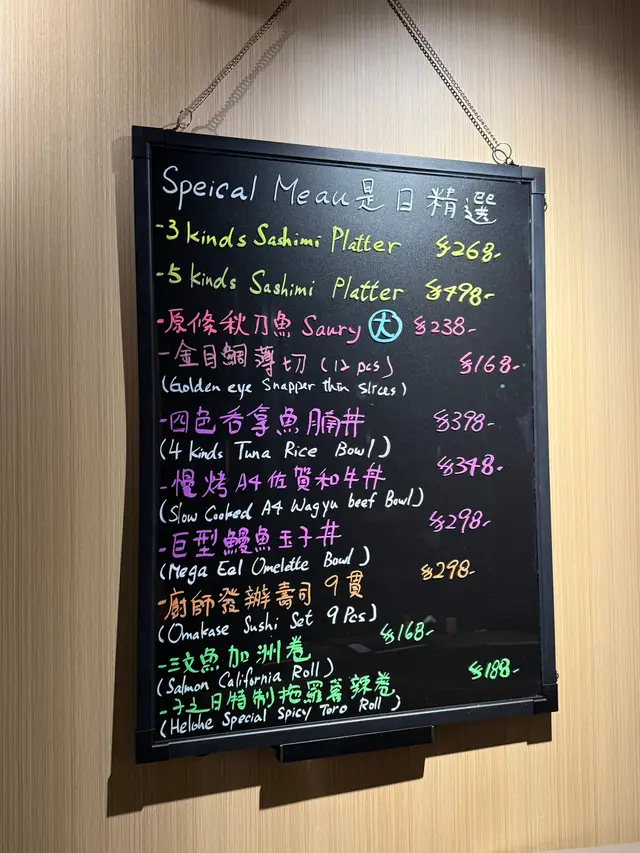 Speical Menu 是日精選
-3 kinds Sashimi Platter $268-
-5 kinds Sashimi Platter $498-
-原條秋刀魚 Saury 大 $238-
-金目鯛薄切 (12 pcs) $168-
(Golden eye Snapper thin slices)
-四色吞拿魚腩丼 $398-
(4 kinds Tuna Rice Bowl)
-慢烤A4佐賀和牛丼 $348-
(Slow Cooked A4 Wagyu beef Bowl)
-巨型鰻魚玉子丼 $298-
(Mega Eel Omelette Bowl)
-廚師發辦壽司 9貫 $298-
(Omakase Sushi Set 9 Pcs)
-三文魚加洲卷 $168-
(Salmon California Roll)
-子之日特制拖羅蔥辣卷 $188-
(Special Spicy Toro Roll)